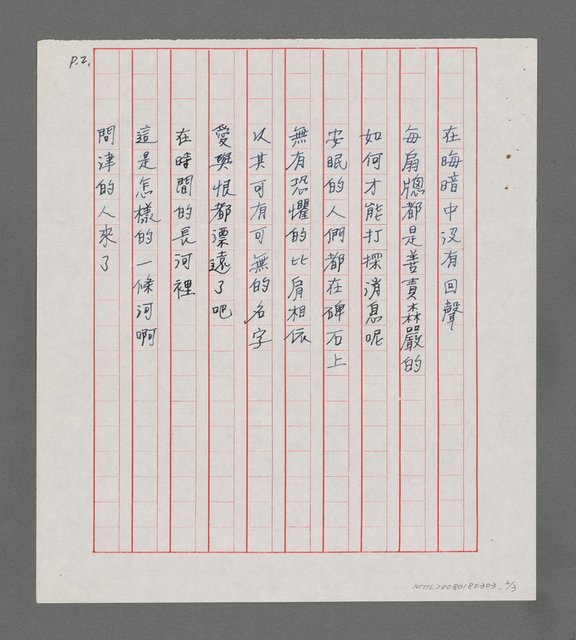 P.2,
在晦暗中沒有回聲
每扇牕都是善責森嚴的
如何才能打探消息呢
安眠的人們都在碑石上
無有恐懼的比肩相依
以其可有可無的名字
愛與恨都漂遠了吧
在時間的長河裡
這是怎樣的一條河啊
問津的人來了
NMTL20080180303, 2/3